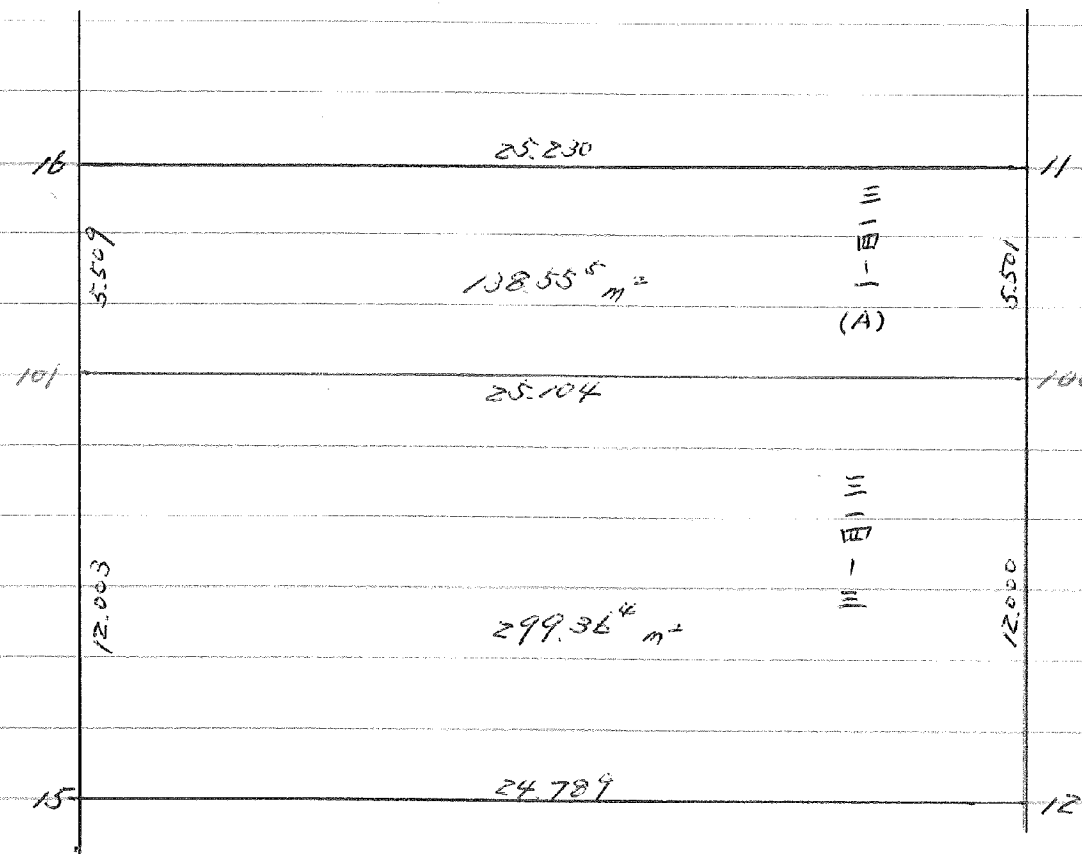 25.230
16
11
5.509
138.55⁵ m²
三一四一三
(A)
5.501
101
25.104
100
12.003
299.36⁴ m²
12.000
15
24.789
12